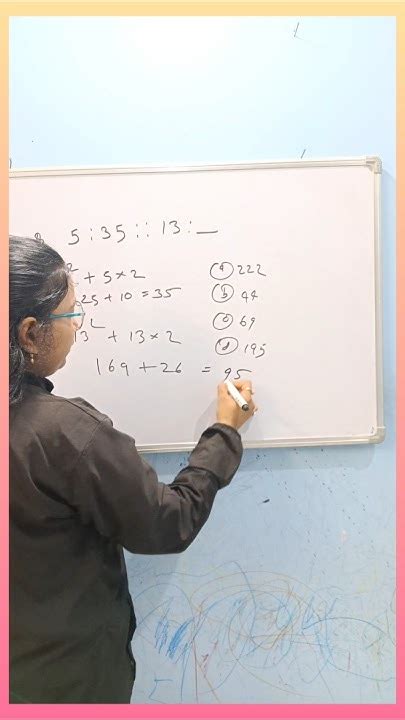 5 : 35 :: 13 : __
2 + 5 × 2
25 + 10 = 35
13 2 + 13 × 2
169 + 26 = 95
(a) 222
(b) 44
(c) 69
(d) 195